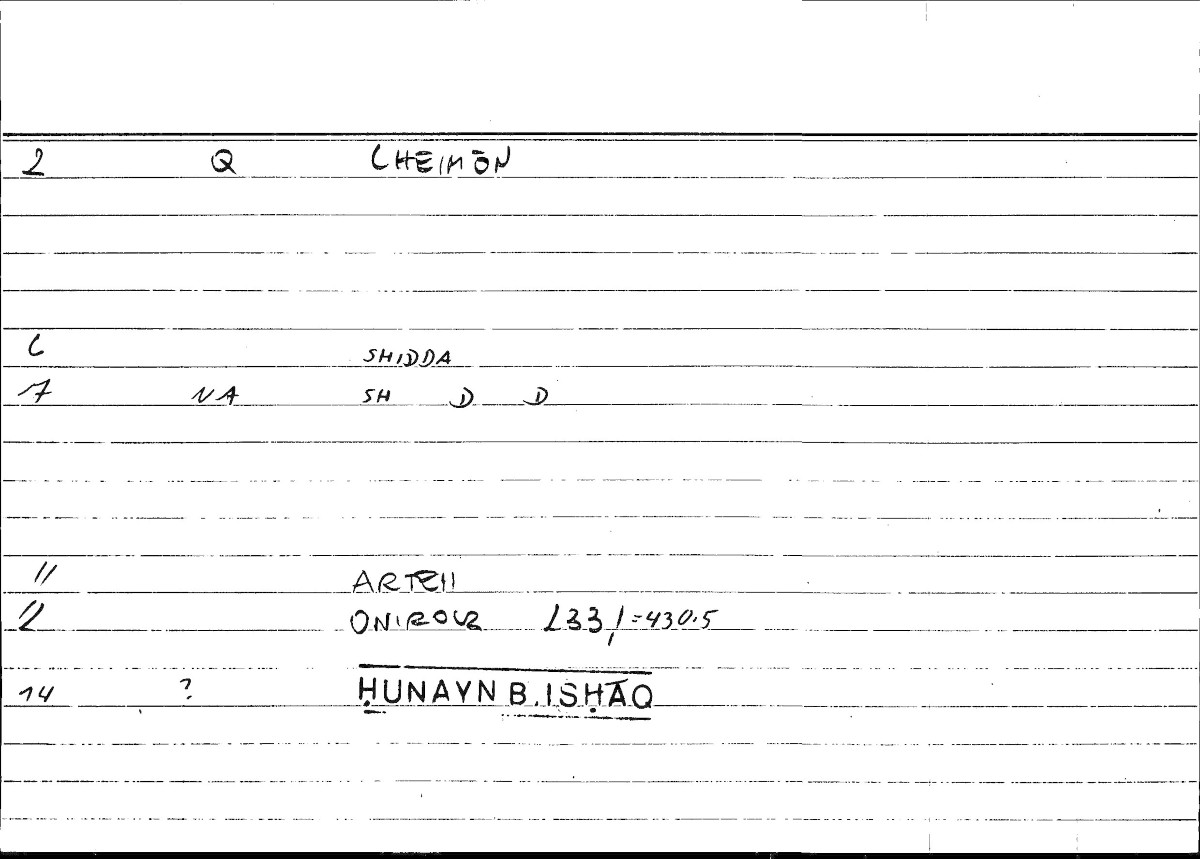 2 Q CHEIMŌN
6 SHIDDA
7 NA SH D D
11 ARTEM
12 ONIROCR 233,1=430.5
14 ? ḤUNAYN B. ISḤĀQ